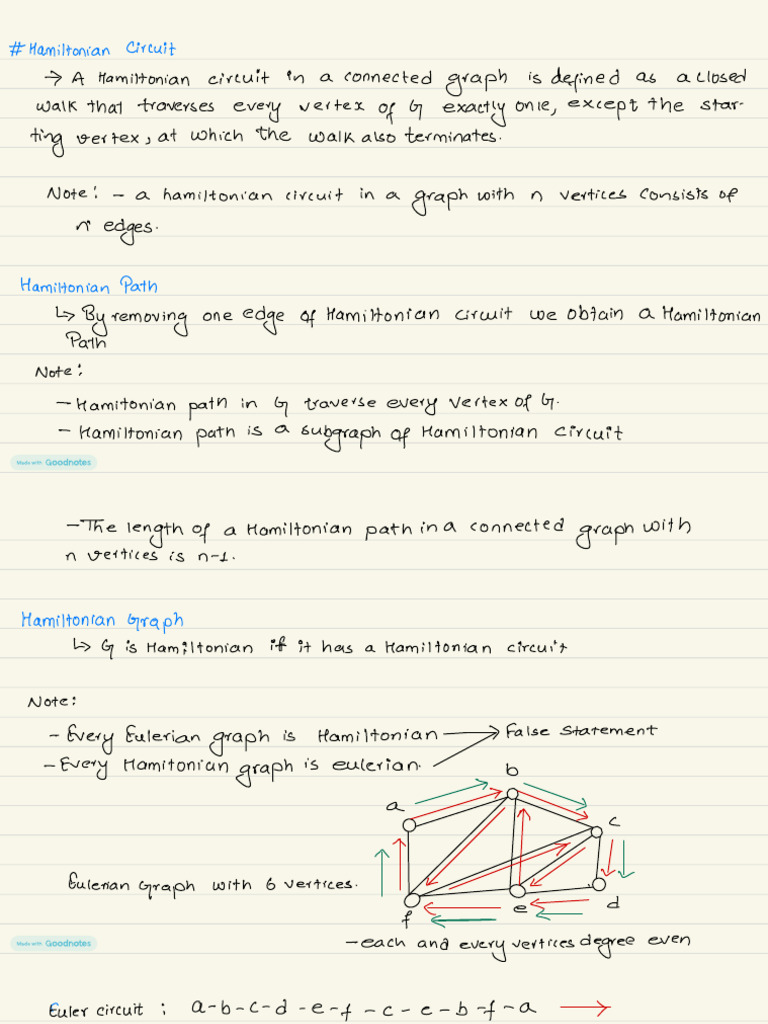 # Hamiltonian Circuit
→ A Hamiltonian circuit in a connected graph is defined as a closed
walk that traverses every vertex of G exactly one, except the star-
ting vertex, at which the walk also terminates.
Note: - a hamiltonian circuit in a graph with n vertices consists of
n edges.
Hamiltonian Path
↳ By removing one edge of Hamiltonian circuit we obtain a Hamiltonian
Path
Note:
- Hamitonian path in G traverse every vertex of G.
- Hamiltonian path is a subgraph of Hamiltonian circuit
Made with Goodnotes
- The length of a Hamiltonian path in a connected graph with
n vertices is n-1.
Hamiltonian Graph
↳ G is Hamiltonian if it has a Hamiltonian circuit
Note:
- Every Eulerian graph is Hamiltonian → False Statement
- Every Hamitonian graph is eulerian.
b
a
c
Eulerian Graph with 6 vertices.
f
e
d
- each and every vertices degree even
Made with Goodnotes
Euler circuit : a-b-c-d-e-f-c-e-b-f-a →